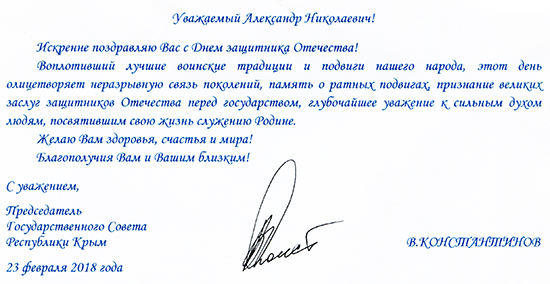 Уважаемый Александр Николаевич!
Искренне поздравляю Вас с Днем защитника Отечества!
Воплотивший лучшие воинские традиции и подвиги нашего народа, этот день
олицетворяет неразрывную связь поколений, память о ратных подвигах, признание великих
заслуг защитников Отечества перед государством, глубочайшее уважение к сильным духом
людям, посвятившим свою жизнь служению Родине.
Желаю Вам здоровья, счастья и мира!
Благополучия Вам и Вашим близким!
С уважением,
Председатель
Государственного Совета
Республики Крым
В.КОНСТАНТИНОВ
23 февраля 2018 года